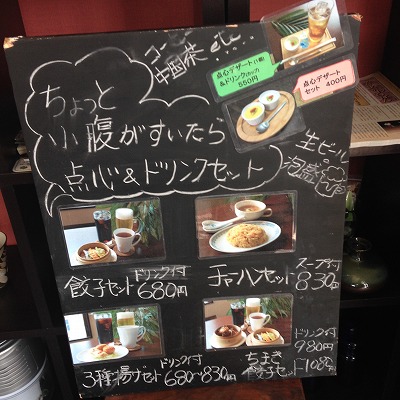 コーヒー
中国茶 etc...
点心デザート(1種)
&ドリンク(カップ)
550円
点心デザート
セット 400円
ちょっと
小腹がすいたら
点心&ドリンクセット
生ビール
泡盛
餃子セット ドリンク付 680円
チャーハンセット スープ付 830円
3種揚げセット ドリンク付 680~830円
ちまき
餃子セット ドリンク付 980円
1080円